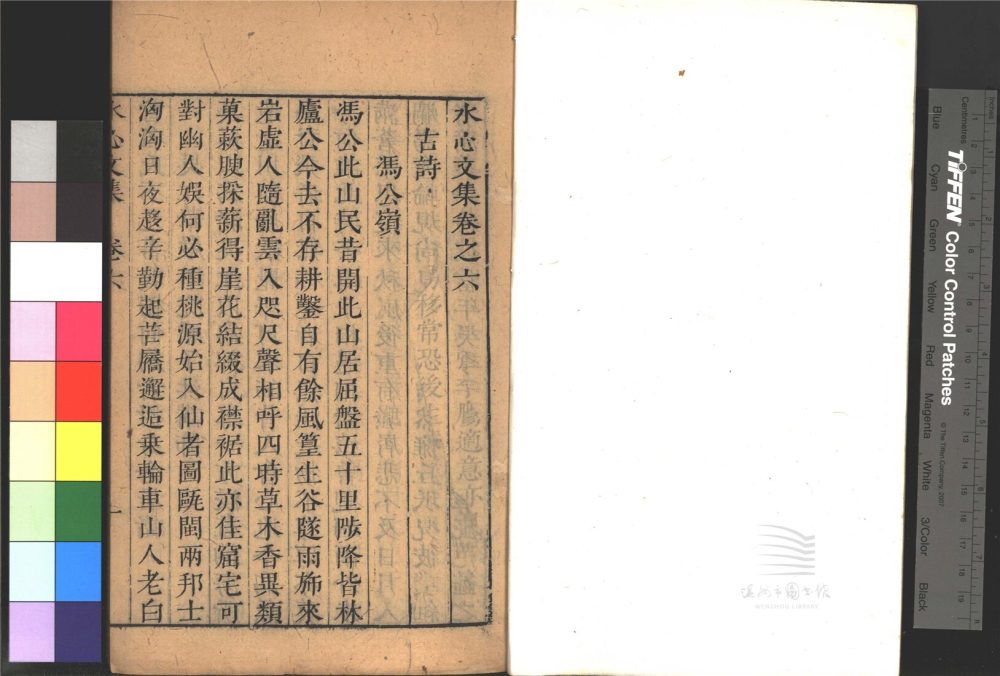 水心文集卷之六
古詩
馮公嶺
馮公此山民昔開此山居屈盤五十里陟降皆林
廬公今去不存耕鑿自有餘風篁生谷隧雨旆來
岩虛人隨亂雲入咫尺聲相呼四時草木香異類
菓蔌腴探薪得崖花結綴成襟裾此亦佳窟宅可
對幽人娛何必種桃源始入仙者圖甌閩兩邦士
洶洶日夜趍辛勤起芒屩邂逅乗輪車山人老白
水心文集 卷六 一
溫州市圖書館
WENZHOU LIBRARY
TIFFEN Color Control Patches
© The Tiffen Company, 2007
Centimetres
Inches
Blue
Cyan
Green
Yellow
Red
Magenta
White
3/Color
Black